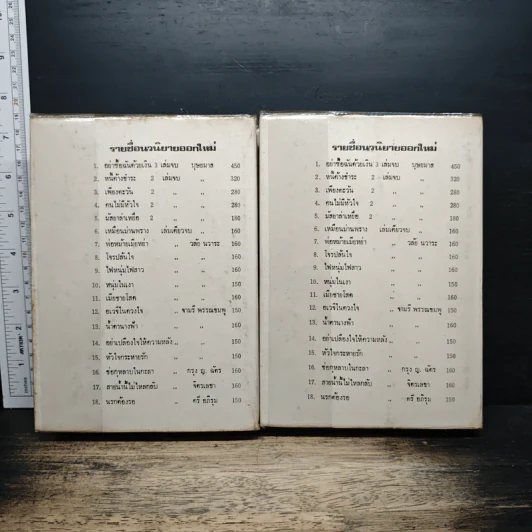 รายชื่อนวนิยายออกใหม่
1. อย่าซื้อฉันด้วยเงิน 3 เล่มจบ บุษยมาส 450
2. หนี้ค้างชำระ 2 เล่มจบ ,, 320
3. เพียงตะวัน 2 ,, ,, 280
4. คนไม่มีหัวใจ ,, ,, 280
5. มัสยาล่าเหยื่อ 2 ,, ,, 180
6. เหมือนม่านพราง เล่มเดียวจบ ,, 160
7. พ่อหม้ายเมียหย่า ,, วลัย นวาระ 160
8. โจรปล้นใจ ,, ,, 160
9. ไฟหนุ่มไฟสาว ,, ,, 160
10. หนุ่มในเงา ,, ,, 150
11. เมียชายโสด ,, ,, 160
12. อเวจีในดวงใจ ,, ชามรี พรรณชมพู 150
13. น้ำตานางฟ้า ,, ,, 160
14. อย่าเปลืองใจให้ความหลัง ,, ,, 150
15. หัวใจกระหายรัก ,, ,, 150
16. ช่อกุหลาบในกะลา ,, กรุง ญ. ฉัตร 160
17. สายน้ำนี้ไม่ไหลกลับ ,, จิตรเลขา 160
18. นรกต้องรอ ,, ศรี อภิรุม 150
รายชื่อนวนิยายออกใหม่
1. อย่าซื้อฉันด้วยเงิน 3 เล่มจบ บุษยมาส 450
2. หนี้ค้างชำระ 2 เล่มจบ ,, 320
3. เพียงตะวัน 2 ,, ,, 280
4. คนไม่มีหัวใจ 2 ,, ,, 280
5. มัสยาล่าเหยื่อ 2 ,, ,, 180
6. เหมือนม่านพราง เล่มเดียวจบ ,, 160
7. พ่อหม้ายเมียหย่า ,, วลัย นวาระ 160
8. โจรปล้นใจ ,, ,, 160
9. ไฟหนุ่มไฟสาว ,, ,, 160
10. หนุ่มในเงา ,, ,, 150
11. เมียชายโสด ,, ,, 160
12. อเวจีในดวงใจ ,, ชามรี พรรณชมพู 150
13. น้ำตานางฟ้า ,, ,, 160
14. อย่าเปลืองใจให้ความหลัง ,, ,, 150
15. หัวใจกระหายรัก ,, ,, 150
16. ช่อกุหลาบในกะลา ,, กรุง ญ. ฉัตร 160
17. สายน้ำนี้ไม่ไหลกลับ ,, จิตรเลขา 160
18. นรกต้องรอ ,, ศรี อภิรุม 150